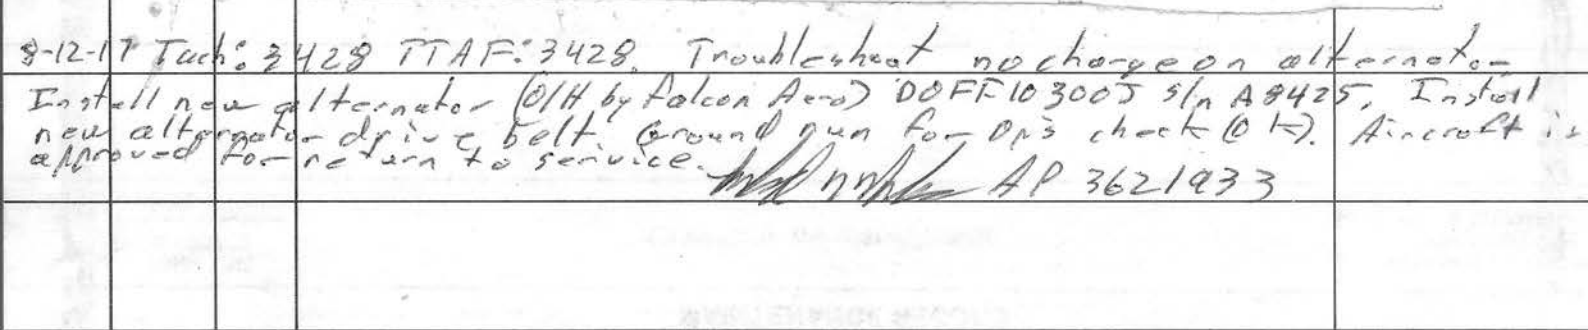 8-12-17 Tach: 3428 TTAF: 3428. Troubleshoot no charge on alternator
Install new alternator (O/H by Falcon Aero) DOFF10300J s/n A8425. Install
new alternator drive belt. Ground run for Ops check (OK). Aircraft is
approved for return to service. AP 3621933